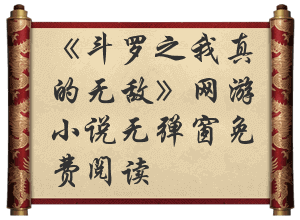 《斗罗之我真
的无敌》网游
小说无弹窗免
费阅读